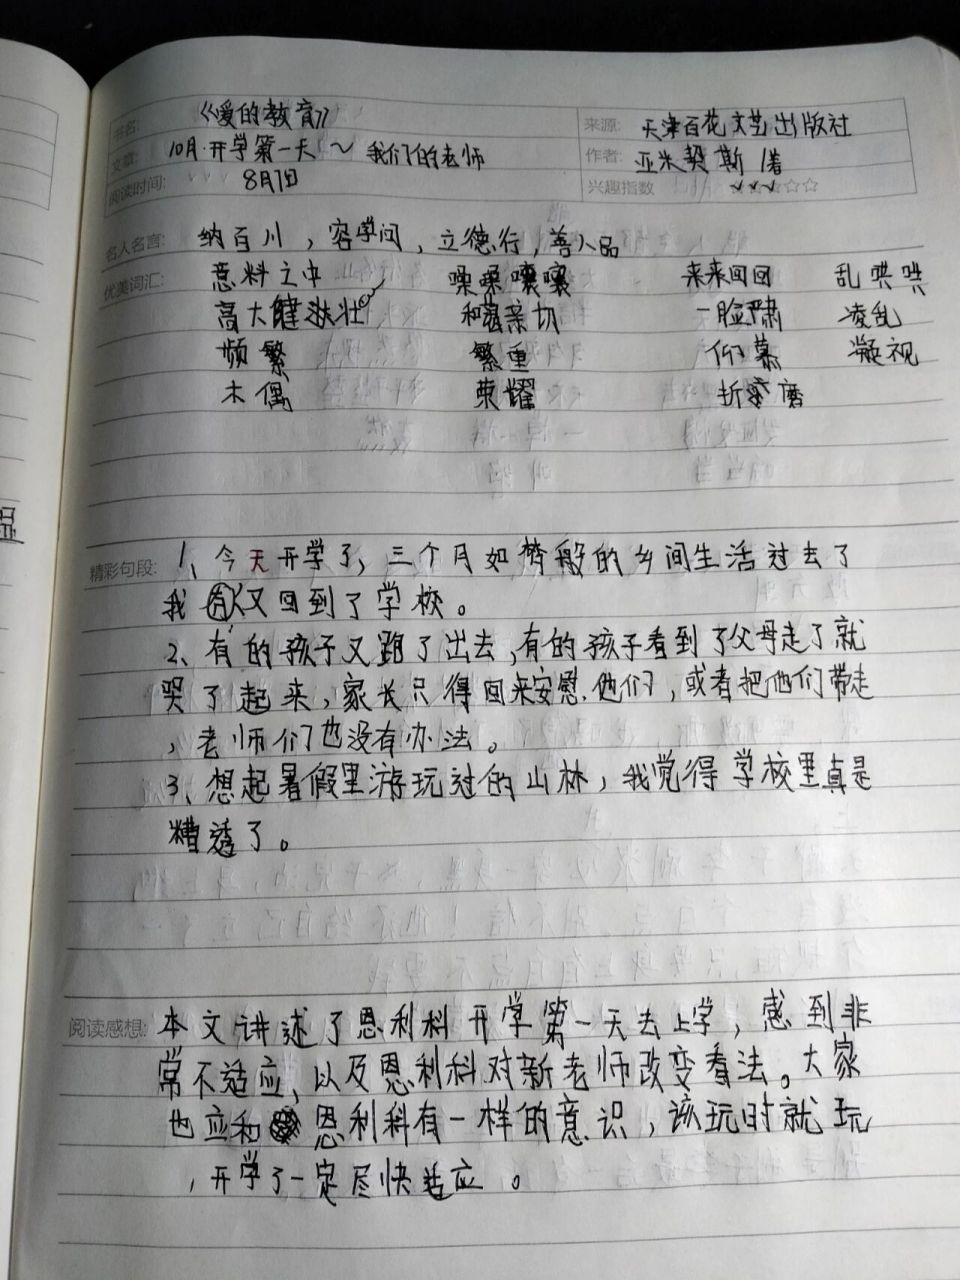 书名: 《爱的教育》 来源: 天津百花文艺出版社
文章: 10月·开学第一天~我们的老师 作者: 亚米契斯著
阅读时间: 8月7日 兴趣指数
名人名言: 纳百川，容学问，立德行，善人品
优美词汇: 意料之中 嗓嗓嚷嚷 来来回回 乱哄哄
高大健壮 和蔼亲切 一脸严肃 凌乱
频繁 繁重 仰慕 凝视
木偶 荣耀 折磨
精彩句段: 1、今天开学了，三个月如梦般的乡间生活过去了
我又回到了学校。
2、有的孩子又跑了出去，有的孩子看到了父母走了就
哭了起来，家长只得回来安慰他们，或者把他们带走
，老师们也没有办法。
3、想起暑假里游玩过的山林，我觉得学校里真是
糟透了。
阅读感想: 本文讲述了恩利科开学第一天去上学，感到非
常不适应，以及恩利科对新老师改变看法。大家
也应和恩利科有一样的意识，该玩时就玩
，开学了一定尽快适应。